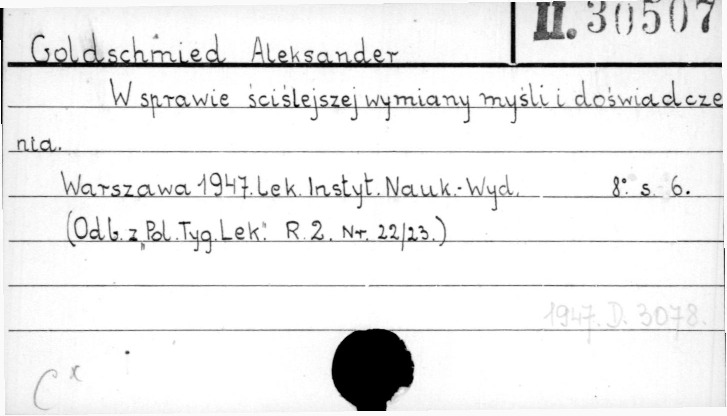 II. 30507
Goldschmied Aleksander
W sprawie ściślejszej wymiany myśli i doświadcze
nia.
Warszawa 1947. Lek. Instyt. Nauk.-Wyd. 8° s. 6.
(Odb. z „Pol. Tyg. Lek." R. 2. Nr. 22/23.)
1947. D. 3078.
C x